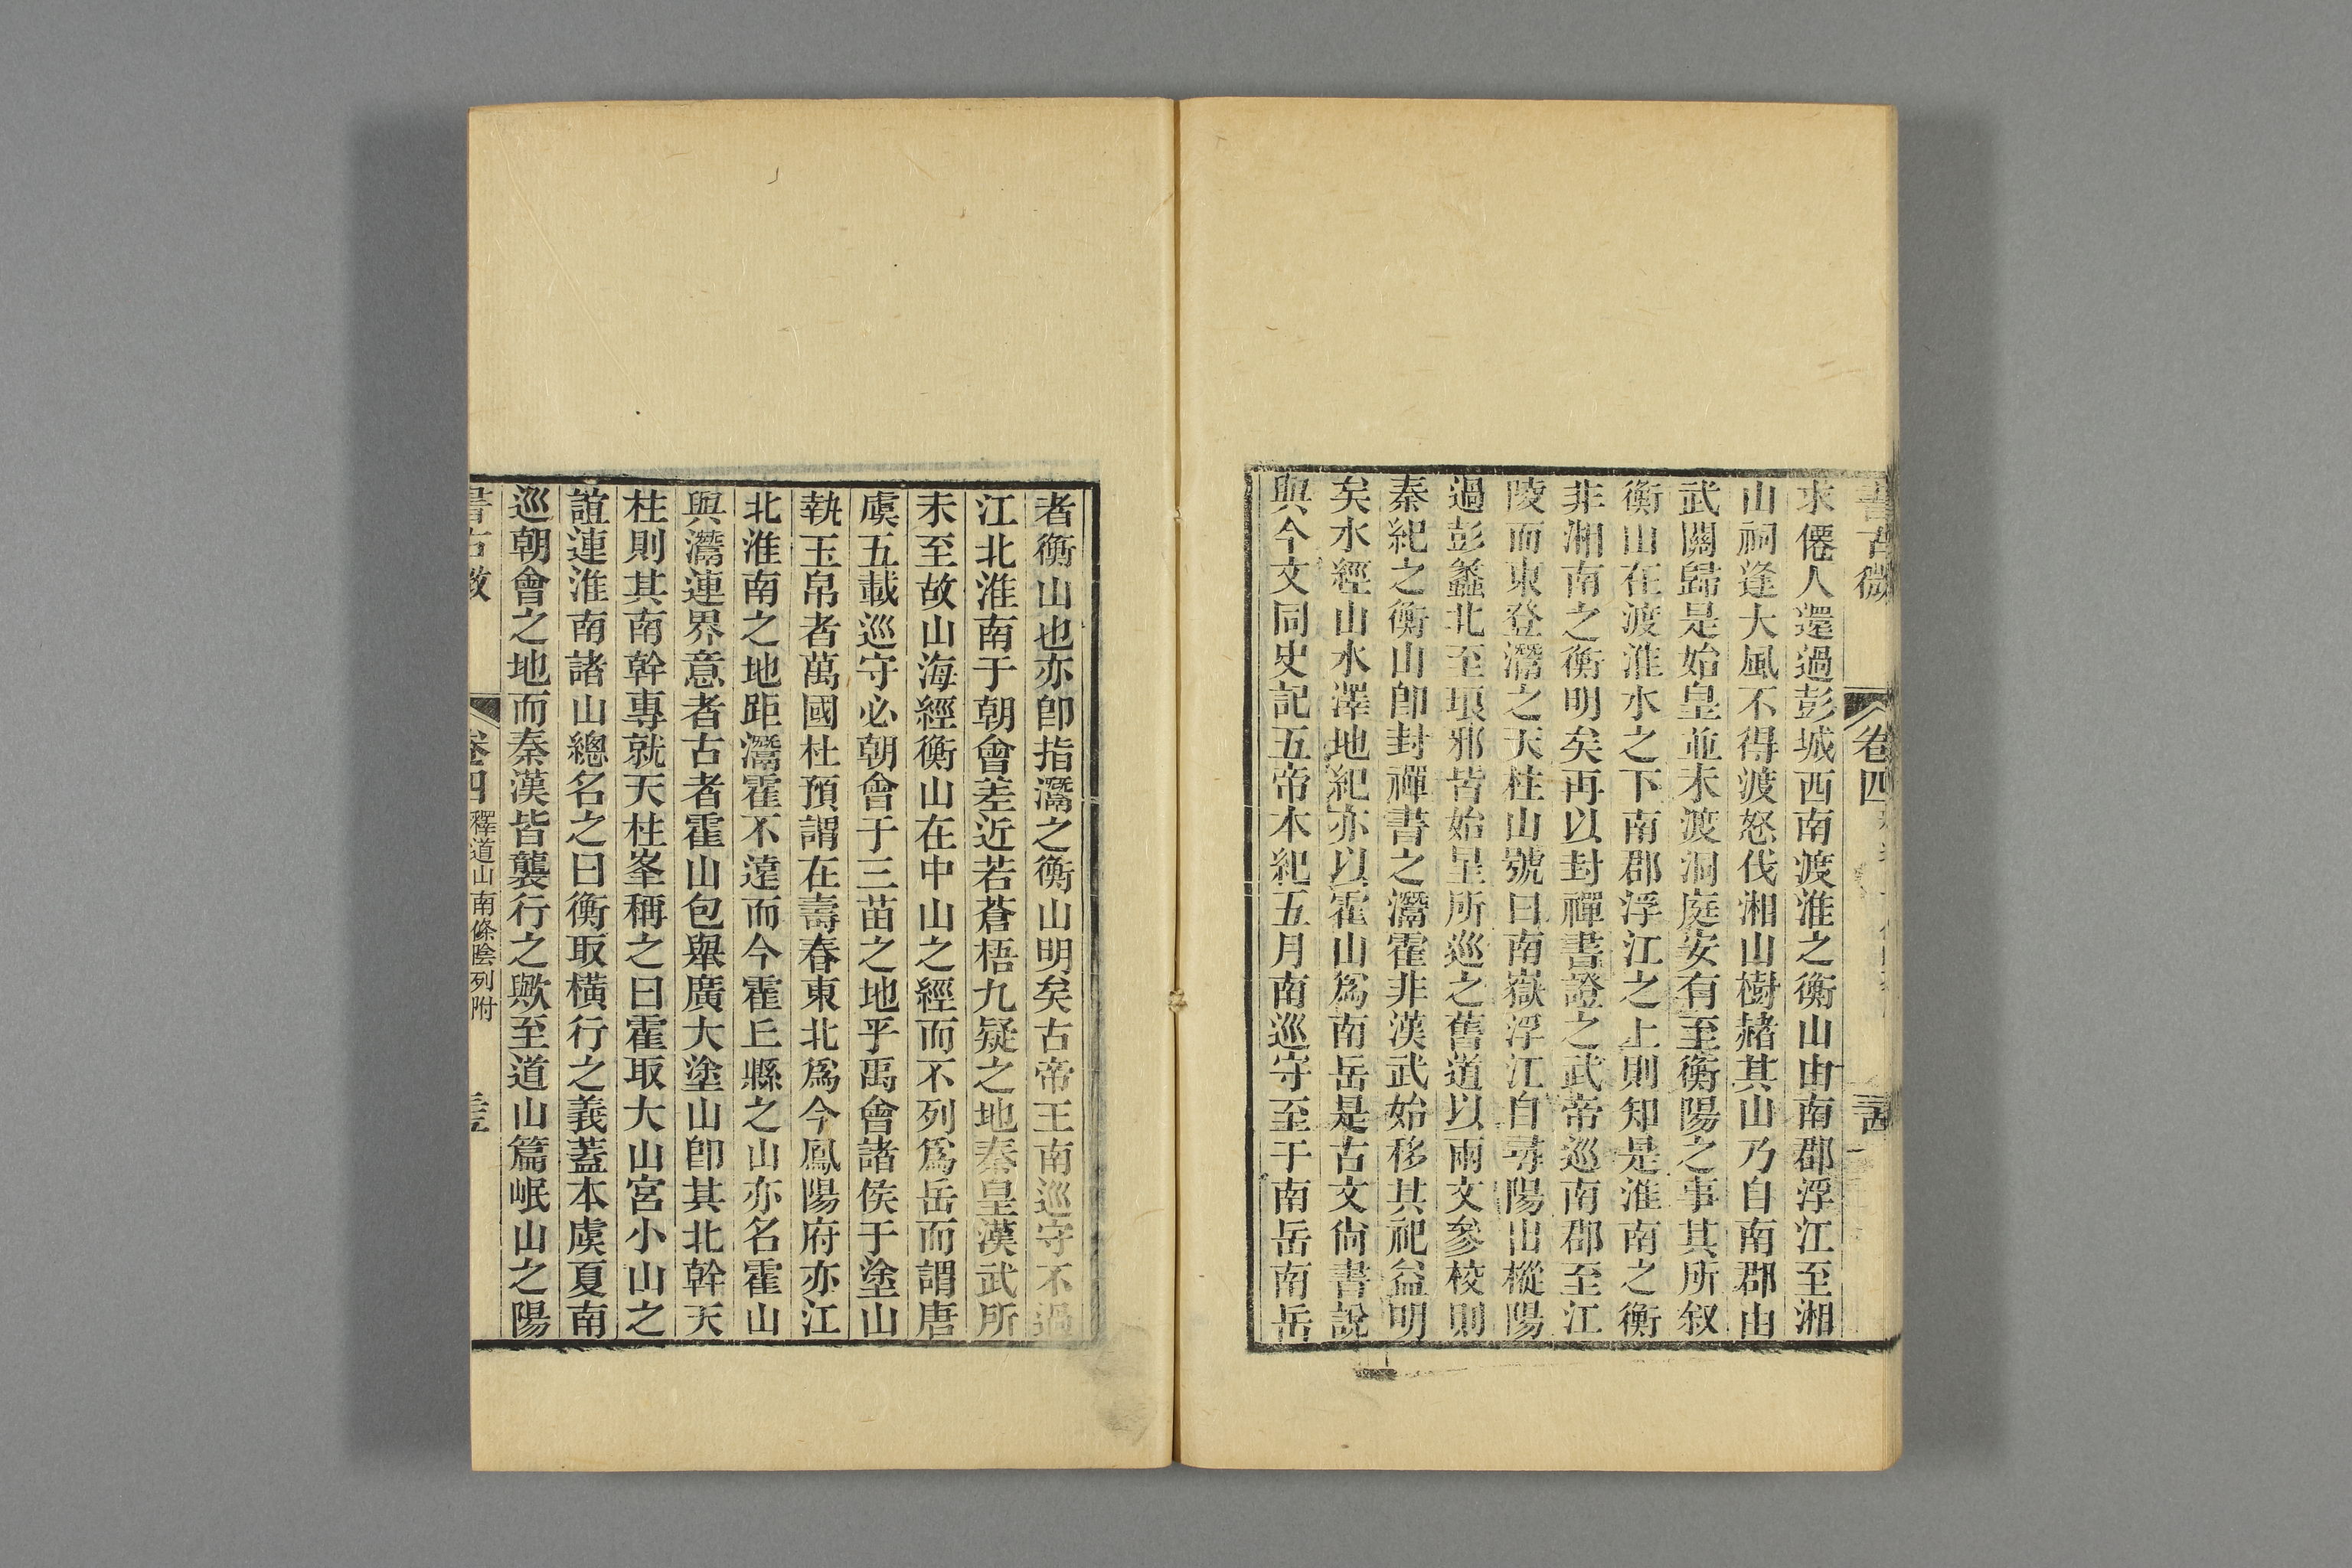 書古微
卷四
求僊人還過彭城西南渡淮之衡山由南郡浮江至湘
山祠逢大風不得渡怒伐湘山樹赭其山乃自南郡由
武關歸是始皇並未渡洞庭安有至衡陽之事其所叙
衡山在渡淮水之下南郡浮江之上則知是淮南之衡
非湘南之衡明矣再以封禪書證之武帝巡南郡至江
陵而東登灊之天柱山號曰南嶽浮江自尋陽出樅陽
過彭蠡北至琅邪皆始皇所巡之舊道以兩文參校則
秦紀之衡山卽封禪書之灊霍非漢武始移其祀益明
矣水經山水澤地紀亦以霍山爲南岳是古文尙書說
與今文同史記五帝本紀五月南巡守至于南岳南岳
者衡山也亦卽指灊之衡山明矣古帝王南巡守不過
江北淮南于朝會差近若蒼梧九疑之地秦皇漢武所
未至故山海經衡山在中山之經而不列爲岳而謂唐
虞五載巡守必朝會于三苗之地乎禹會諸侯于塗山
執玉帛者萬國杜預謂在壽春東北爲今鳳陽府亦江
北淮南之地距灊霍不遠而今霍丘縣之山亦名霍山
與灊連界意者古者霍山包舉廣大塗山卽其北幹天
柱則其南幹專就天柱峯稱之曰霍取大山宮小山之
誼連淮南諸山總名之曰衡取橫行之義蓋本虞夏南
巡朝會之地而秦漢皆襲行之歟至道山篇岷山之陽
書古微
卷四
釋道山南條陰列附